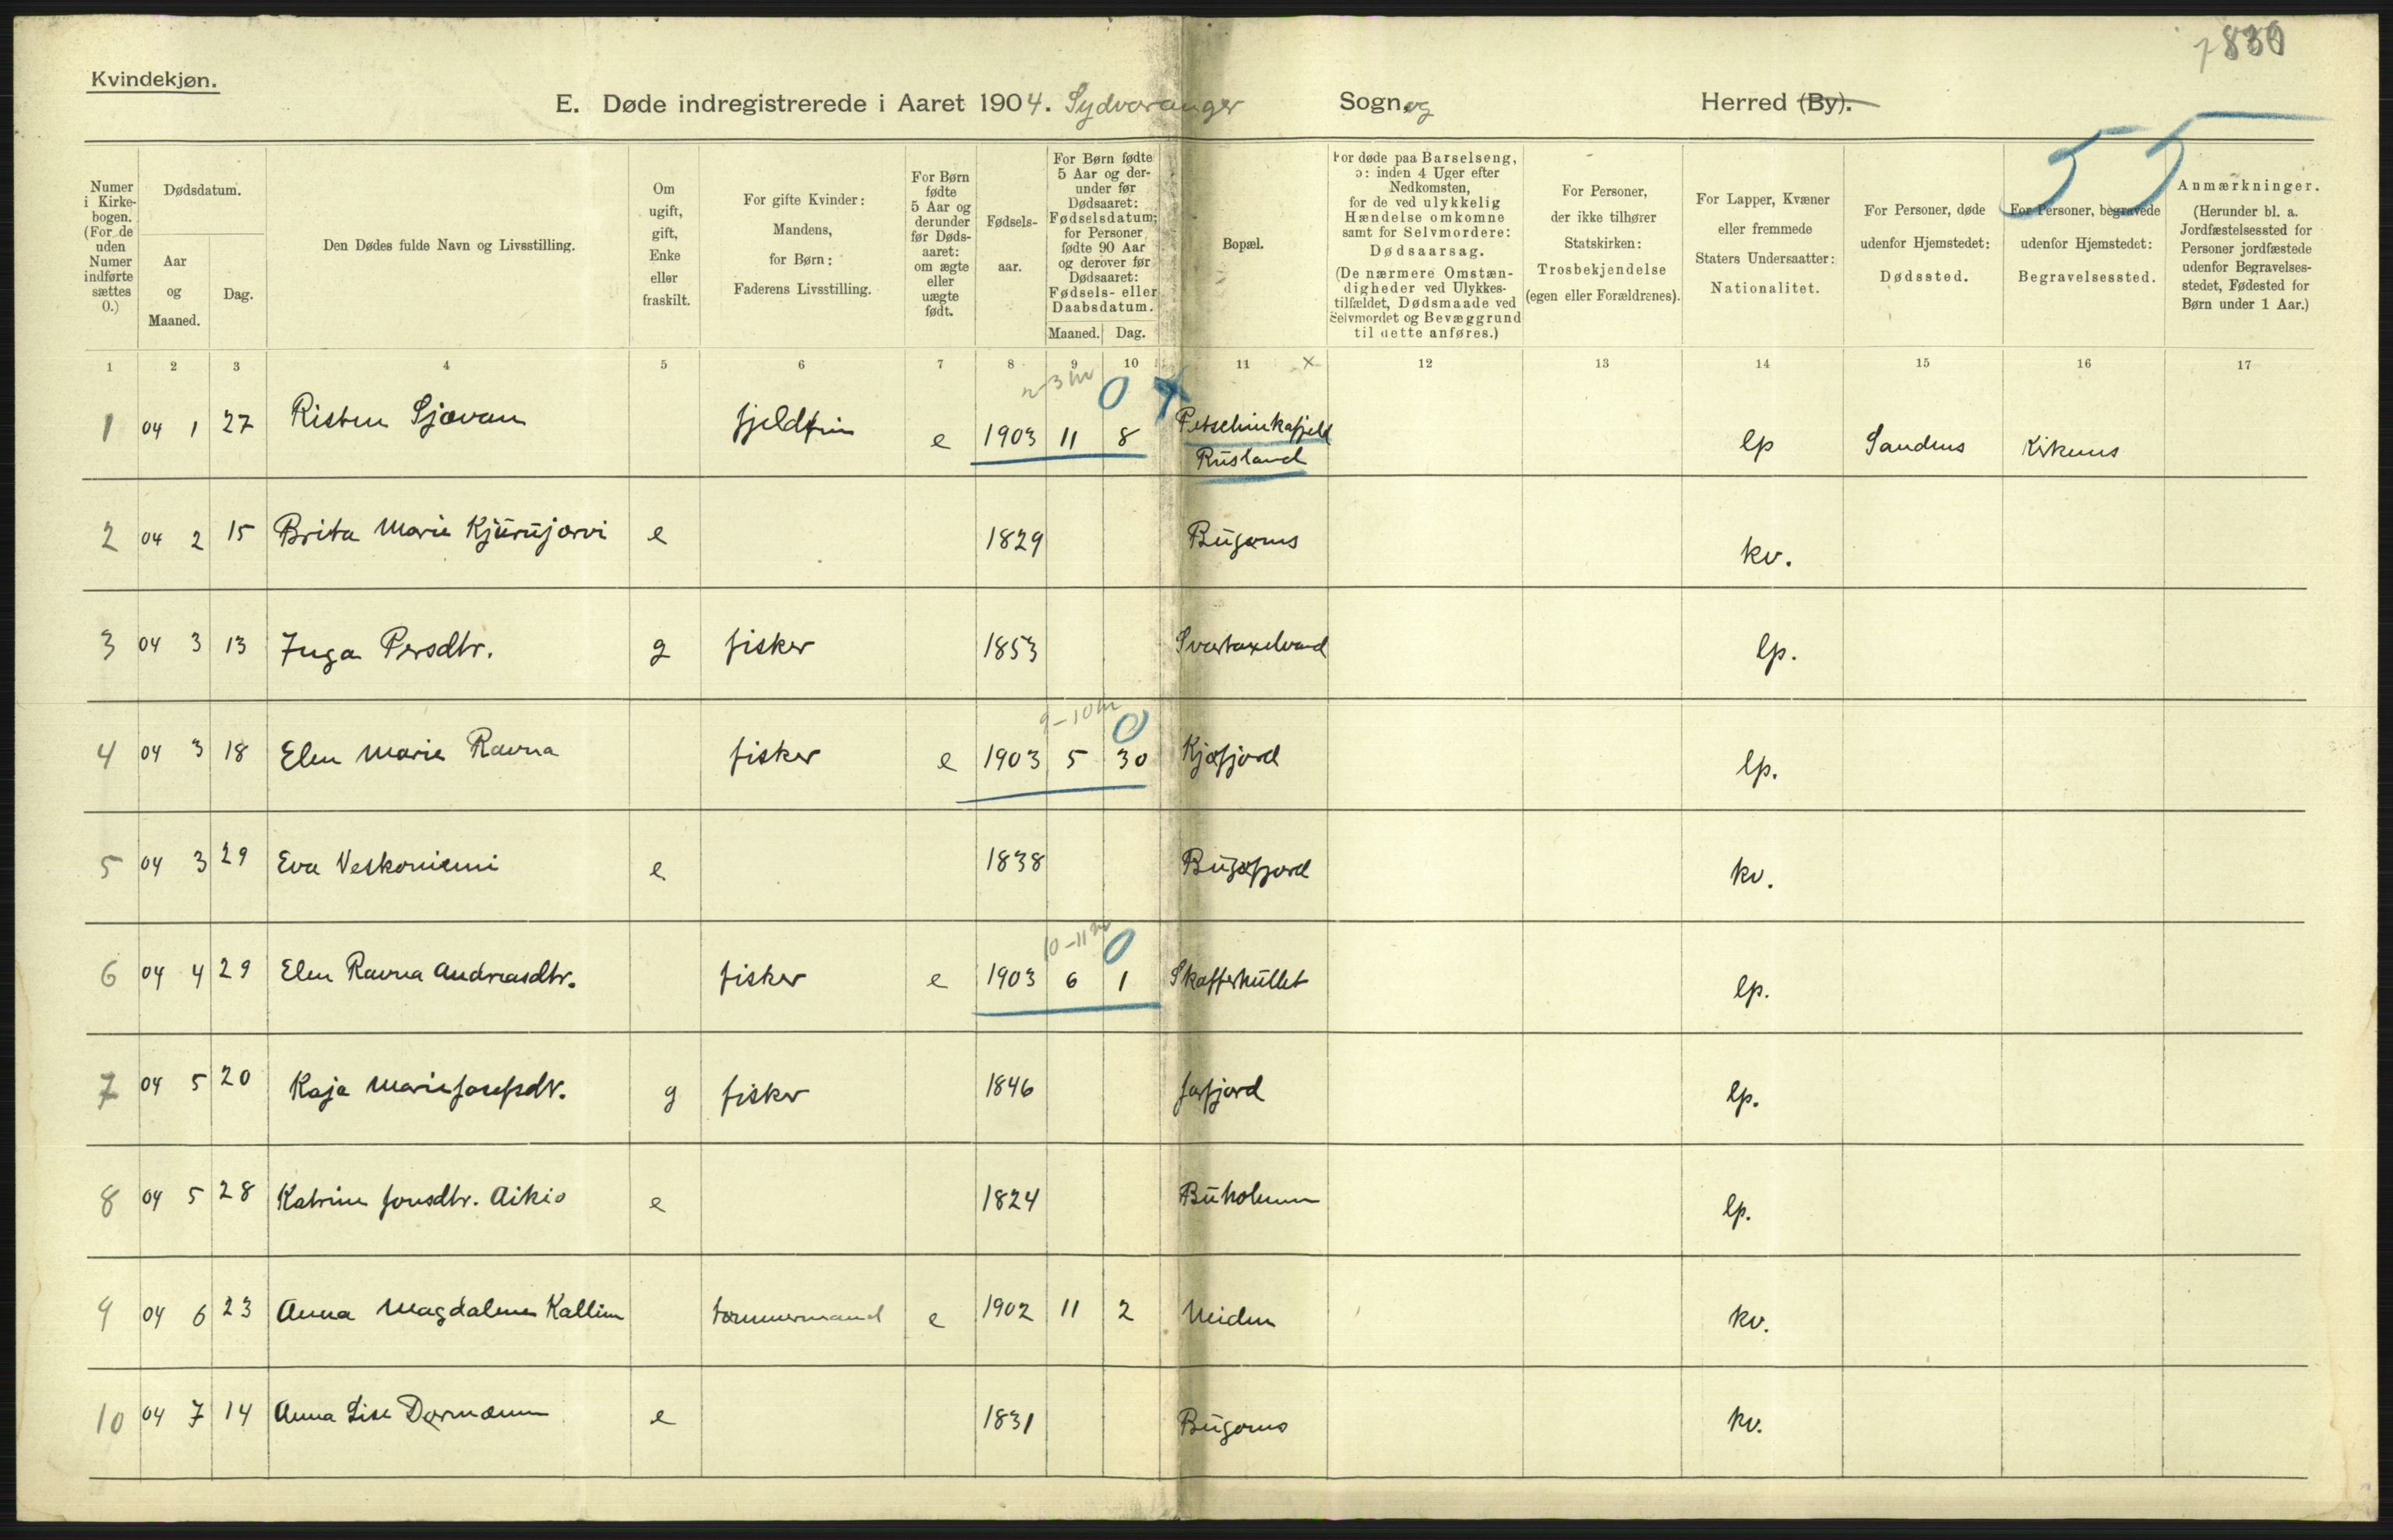 7830
Kvindekjøn.
E. Døde indregistrerede i Aaret 1904. Sydvaranger Sogn og Herred (By).
55
Numer i Kirke-bogen. (For de uden Numer indførte sættes 0.)
Dødsdatum.
Aar og Maaned.
Dag.
Den Dødes fulde Navn og Livsstilling.
Om ugift, gift, Enke eller fraskilt.
For gifte Kvinder: Mandens, for Børn: Faderens Livsstilling.
For Børn fødte 5 Aar og derunder før Døds-aaret: om ægte eller uægte født.
Fødsels-aar.
For Børn fødte 5 Aar og der-under før Dødsaaret: Fødselsdatum; for Personer fødte 90 Aar og derover før Dødsaaret: Fødsels- eller Daabsdatum.
Maaned. Dag.
Bopæl.
For døde paa Barselseng, ɔ: inden 4 Uger efter Nedkomsten, for de ved ulykkelig Hændelse omkomne samt for Selvmordere: Dødsaarsag. (De nærmere Omstæn-digheder ved Ulykkes-tilfældet, Dødsmaade ved Selvmordet og Bevæggrund til dette anføres.)
For Personer, der ikke tilhører Statskirken: Trosbekjendelse (egen eller Forældrenes).
For Lapper, Kvæner eller fremmede Staters Undersaatter: Nationalitet.
For Personer, døde udenfor Hjemstedet: Dødssted.
For Personer, begravede udenfor Hjemstedet: Begravelsessted.
Anmærkninger. (Herunder bl. a. Jordfæstelsessted for Personer jordfæstede udenfor Begravelses-stedet, Fødested for Børn under 1 Aar.)
1 2 3 4 5 6 7 8 9 10 11 x 12 13 14 15 16 17
2-3 m 0
1 04 1 27 Risten Sjavan fjeldfin e 1903 11 8 Petschinkafjeld Rusland lp Sandnes Kirkenes
2 04 2 15 Brita Marie Kjurujarvi e 1829 Bugønes kv.
3 04 3 13 Inga Persdtr. g fisker 1853 Svartaxelvand lp.
9-10 m 0
4 04 3 18 Elen Marie Ravna fisker e 1903 5 30 Kjøfjord lp.
5 04 3 29 Eva Veskoniemi e 1838 Bugøfjord kv.
10-11 m 0
6 04 4 29 Elen Ravna Andreasdtr. fisker e 1903 6 1 Skafferhullet lp.
7 04 5 20 Kaja Marie Josefsdtr. g fisker 1846 Jarfjord lp.
8 04 5 28 Katrine Jonsdtr. Aikio e 1824 Buholmen lp.
9 04 6 23 Anna Magdalene Kallim tømmermand e 1902 11 2 Neiden kv.
10 04 7 14 Anna Lise Dørmænen e 1831 Bugønes kv.